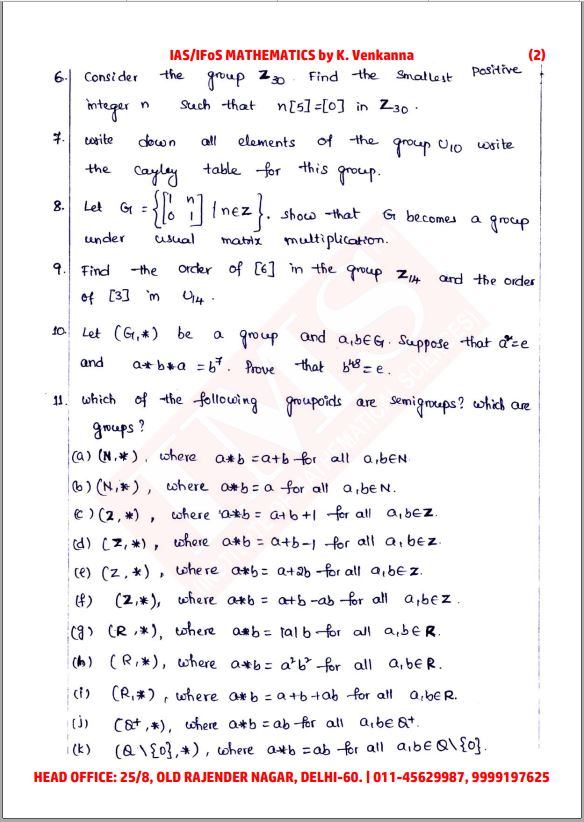 IAS/IFoS MATHEMATICS by K. Venkanna (2)
6. Consider the group Z₃₀. Find the smallest positive
integer n such that n[5]=[0] in Z₃₀.
7. write down all elements of the group U₁₀ write
the Cayley table for this group.
8. Let G = {[1 n; 0 1] | n∈Z}. show that G becomes a group
under usual matrix multiplication.
9. Find the order of [6] in the group Z₁₄ and the order
of [3] in U₁₄.
10. Let (G,*) be a group and a,b∈G. Suppose that a²=e
and a*b*a = b⁷. Prove that b⁴⁸=e.
11. which of the following groupoids are semigroups? which are
groups?
(a) (N,*), where a*b = a+b for all a,b∈N
(b) (N,*), where a*b = a for all a,b∈N.
(c) (Z,*), where a*b = a+b+1 for all a,b∈Z.
(d) (Z,*), where a*b = a+b-1 for all a,b∈Z.
(e) (Z,*), where a*b = a+2b for all a,b∈Z.
(f) (Z,*), where a*b = a+b-ab for all a,b∈Z.
(g) (R,*), where a*b = |a|b for all a,b∈R.
(h) (R,*), where a*b = a²b² for all a,b∈R.
(i) (R,*), where a*b = a+b+ab for all a,b∈R.
(j) (Q⁺,*), where a*b = ab for all a,b∈Q⁺.
(k) (Q\{0},*), where a*b = ab for all a,b∈Q\{0}.
HEAD OFFICE: 25/8, OLD RAJENDER NAGAR, DELHI-60. | 011-45629987, 9999197625